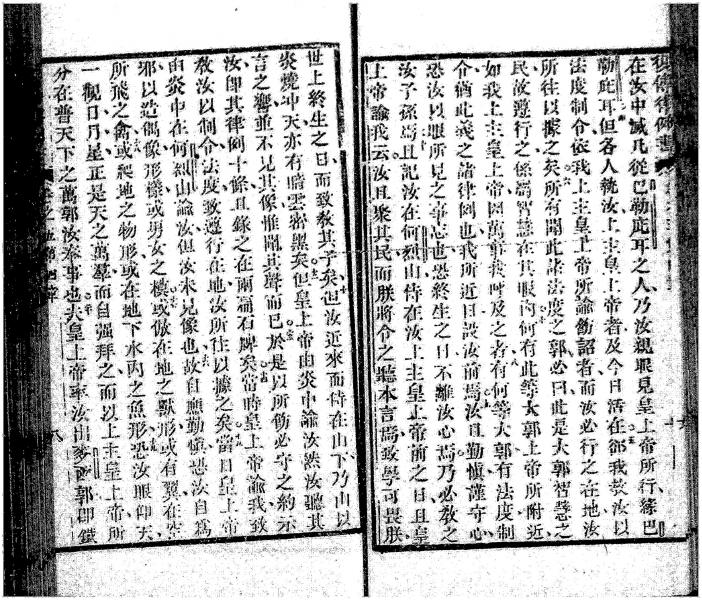 復傳律例書
在汝中滅凡從巴勒庇耳之人乃汝親眼見皇上帝所行緣巴
勒庇耳但各人執汝上主皇上帝者及今日活在卽我敎汝以
法度制令依我上主皇上帝所諭飭詔者而汝必行之在地汝
所往以據之矣所有聞此諸法度之郭必曰此是大郭智慧之
民故遵行之係爾智慧在其眼內何有此等大郭上帝所附近
如我上主皇上帝因萬事我呼及之者有何等大郭有法度制
令猶此義之諸律例也我所近日設汝前焉汝且勤愼謹守心
恐汝以眼所見之事忘也恐終生之日不離汝心焉乃必敎之
汝子孫焉且記汝在何烈山侍在汝上主皇上帝前之日且皇
上帝諭我云汝且聚其民而朕將令之聽本言焉致學可畏朕
世上終生之日而致敎其子矣但汝近來而侍在山下乃山以
炎燒冲天亦有暗雲密黑矣但皇上帝由炎中諭汝然汝聽其
言之響並不見其像惟聞其聲而已於是以所飭必守之約示
汝卽其律例十條且錄之在兩扁石牌矣當時皇上帝諭我致
敎汝以制令法度致遵行在地汝所往以據之矣當日皇上帝
由炎中在何烈山諭汝但汝未見像也故自應勤愼恐汝自爲
邪以造偶像形樣或男女之模或倣在地之獸形或有翼在空
所飛之禽或爬地之物形或在地下水內之魚形恐汝眼仰天
一觀日月星正是天之萬羣而自强拜之而以上主皇上帝所
分在普天下之萬郭汝奉事也夫皇上帝率汝出麥西郭卽鐵
八